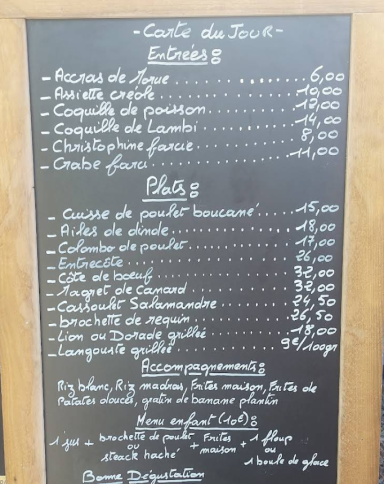 - Carte du JOUR -
Entrées :
- Accras de Morue ........... 6,00
- Assiette créole ........... 10,00
- Coquille de poisson ........... 12,00
- Coquille de Lambi ........... 14,00
- Christophine farcie ........... 8,00
- Crabe farci ........... 11,00
Plats :
- Cuisse de poulet boucané ..... 15,00
- Ailes de dinde ........... 18,00
- Colombo de poulet ........... 17,00
- Entrecôte ........... 26,00
- Côte de bœuf ........... 32,00
- Magret de Canard ........... 32,00
- Cassoulet Salamandre ........... 24,50
- brochette de requin ........... 26,50
- Lion ou Dorade grillée ........... 18,00
- Langouste grillée ........... 9€/100gr
Accompagnements :
Riz blanc, Riz madras, Frites maison, Frites de
Patates douces, gratin de banane plantin
Menu enfant (10€) :
1 jus + brochette de poulet ou steack haché + Frites maison + 1 floup ou 1 boule de glace
Bonne Dégustation